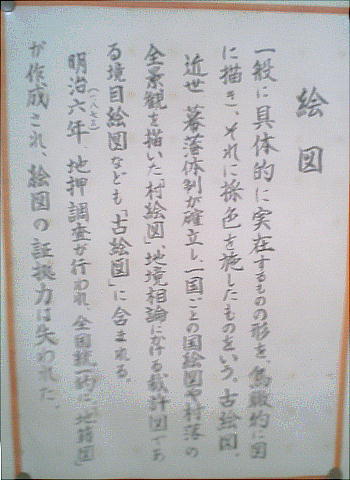 絵図
一般に具体的に実在するものの形を、鳥瞰的に図
に描き、それに採色を施したものをいう。古絵図。
近世 幕藩体制が確立し、一国ごとの国絵図や村落の
全景観を描いた「村絵図」、地境相論における裁計図であ
る境目絵図なども「古絵図」に含まれる。
明治六年(一八七三)、地押調査が行われ、全国統一的に「地籍図」
が作成され、絵図の証拠力は失われた。